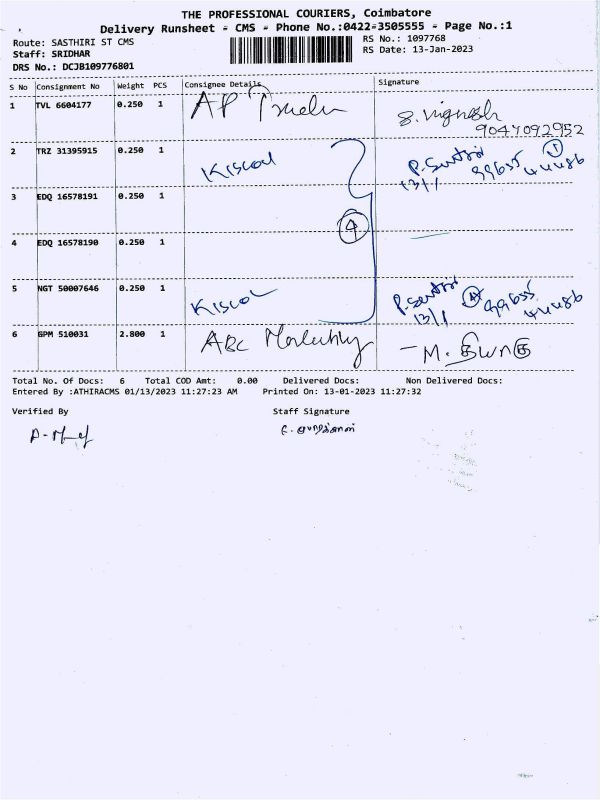 THE PROFESSIONAL COURIERS, Coimbatore
Delivery Runsheet - CMS - Phone No.:0422-3505555 - Page No.:1
Route: SASTHIRI ST CMS
RS No.: 1097768
Staff: SRIDHAR
RS Date: 13-Jan-2023
DRS No.: DCJB109776801
S No Consignment No Weight PCS Consignee Details Signature
1 TVL 6604177 0.250 1 AP
S. Vignesh
9047092952
2 TRZ 31395915 0.250 1 Kiscol
13/1 99655 44486
3 EDQ 16578191 0.250 1
4 EDQ 16578190 0.250 1
4
5 NGT 50007646 0.250 1 Kiscol
13/1 99655 44486
6 GPM 510031 2.800 1 ABC
M. தியாகு
Total No. Of Docs: 6 Total COD Amt: 0.00 Delivered Docs: Non Delivered Docs:
Entered By :ATHIRACMS 01/13/2023 11:27:23 AM Printed On: 13-01-2023 11:27:32
Verified By Staff Signature